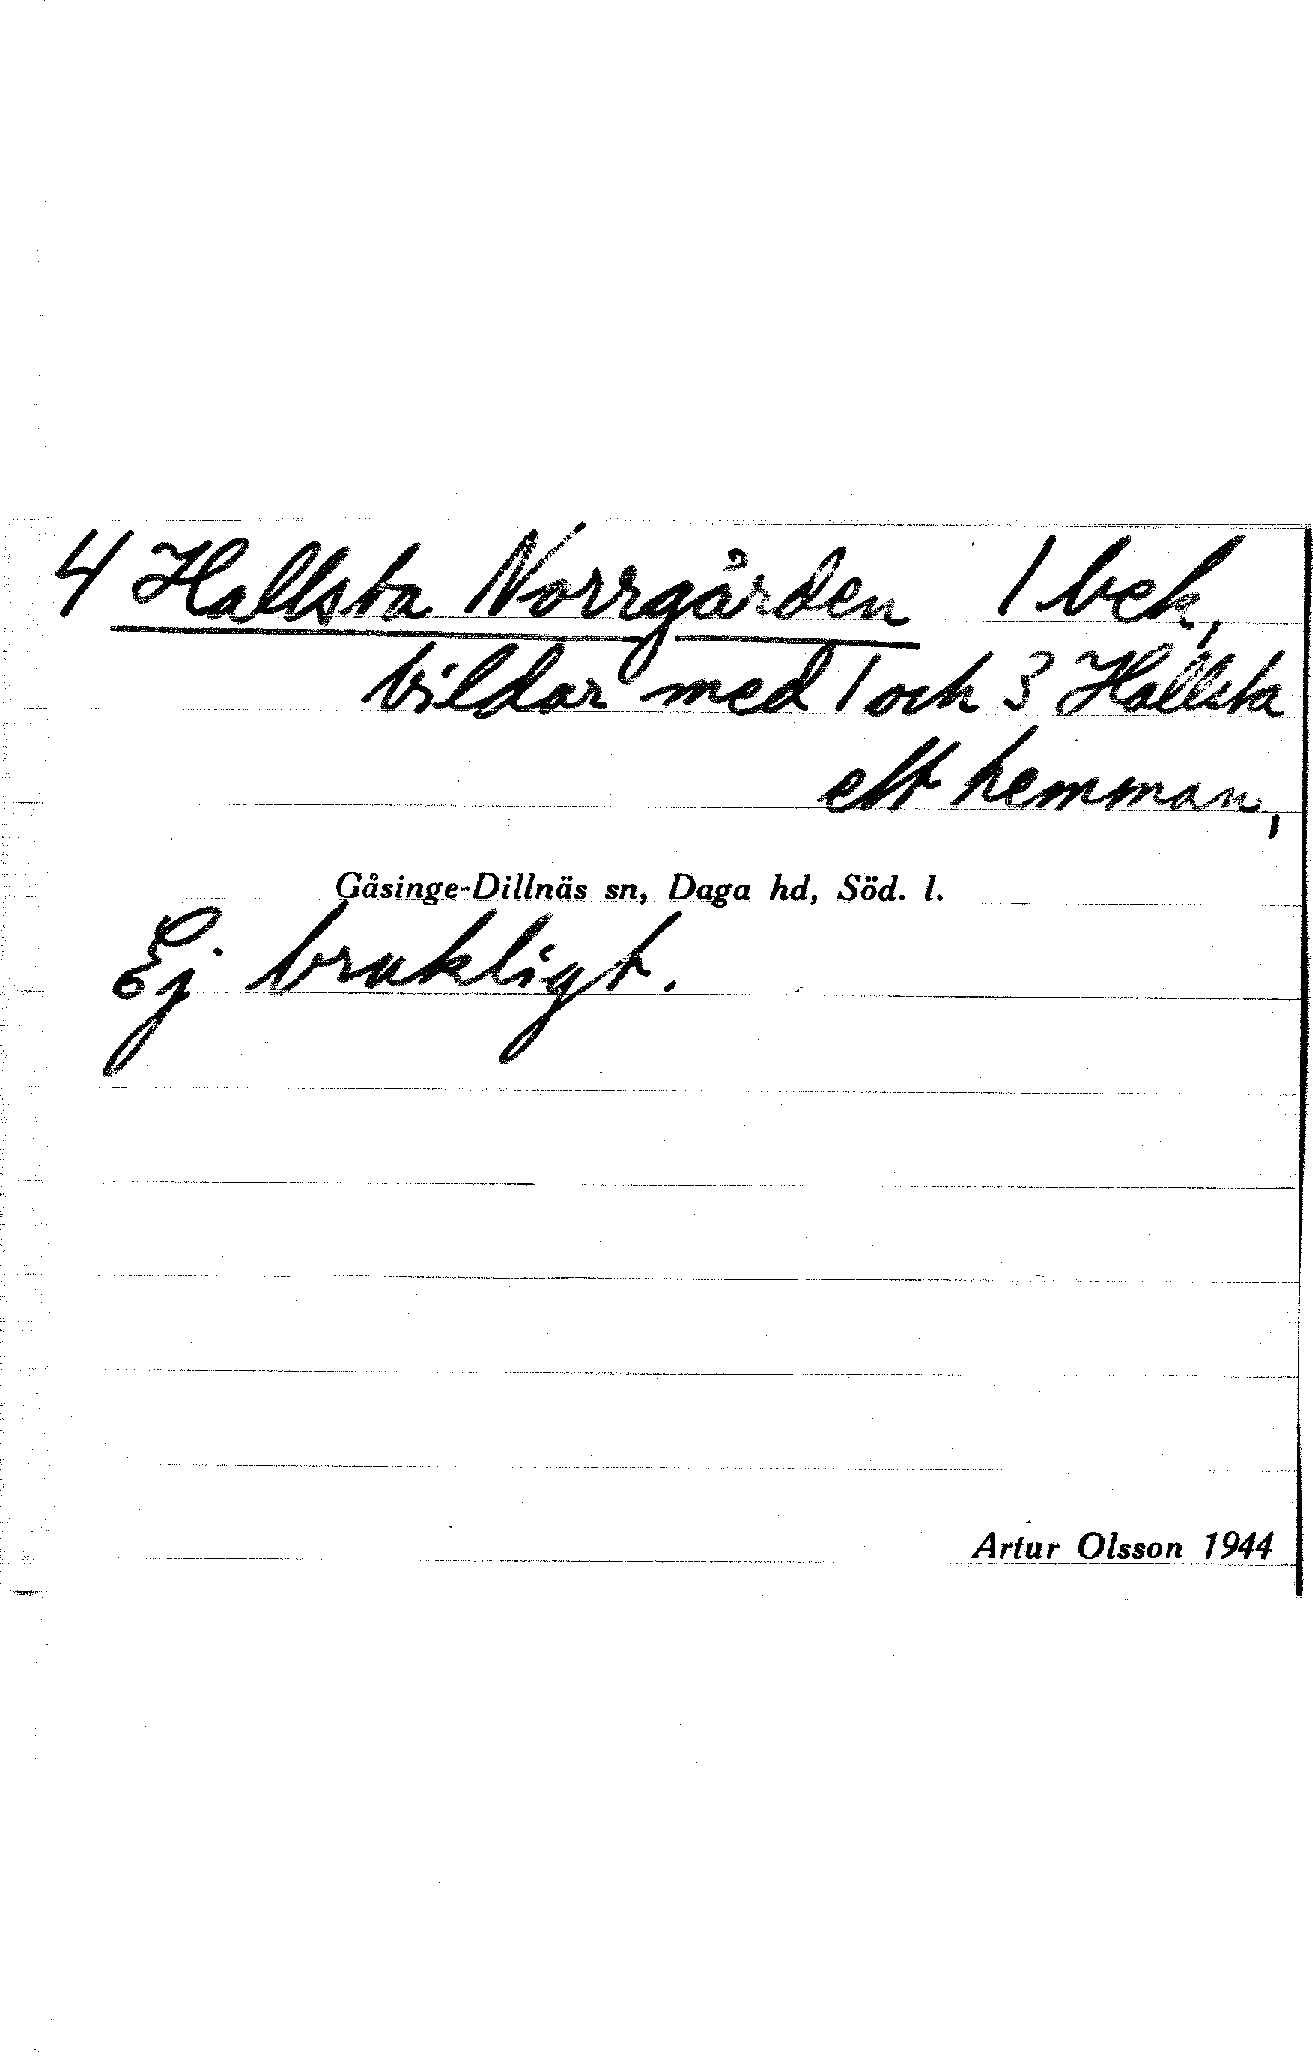 4 Hallsta Norrgården 1 bek,
bildar med 1 och 3 Hallsta
ett hemman,
Gåsinge-Dillnäs sn, Daga hd, Söd. l.
Ej brukligt.
Artur Olsson 1944